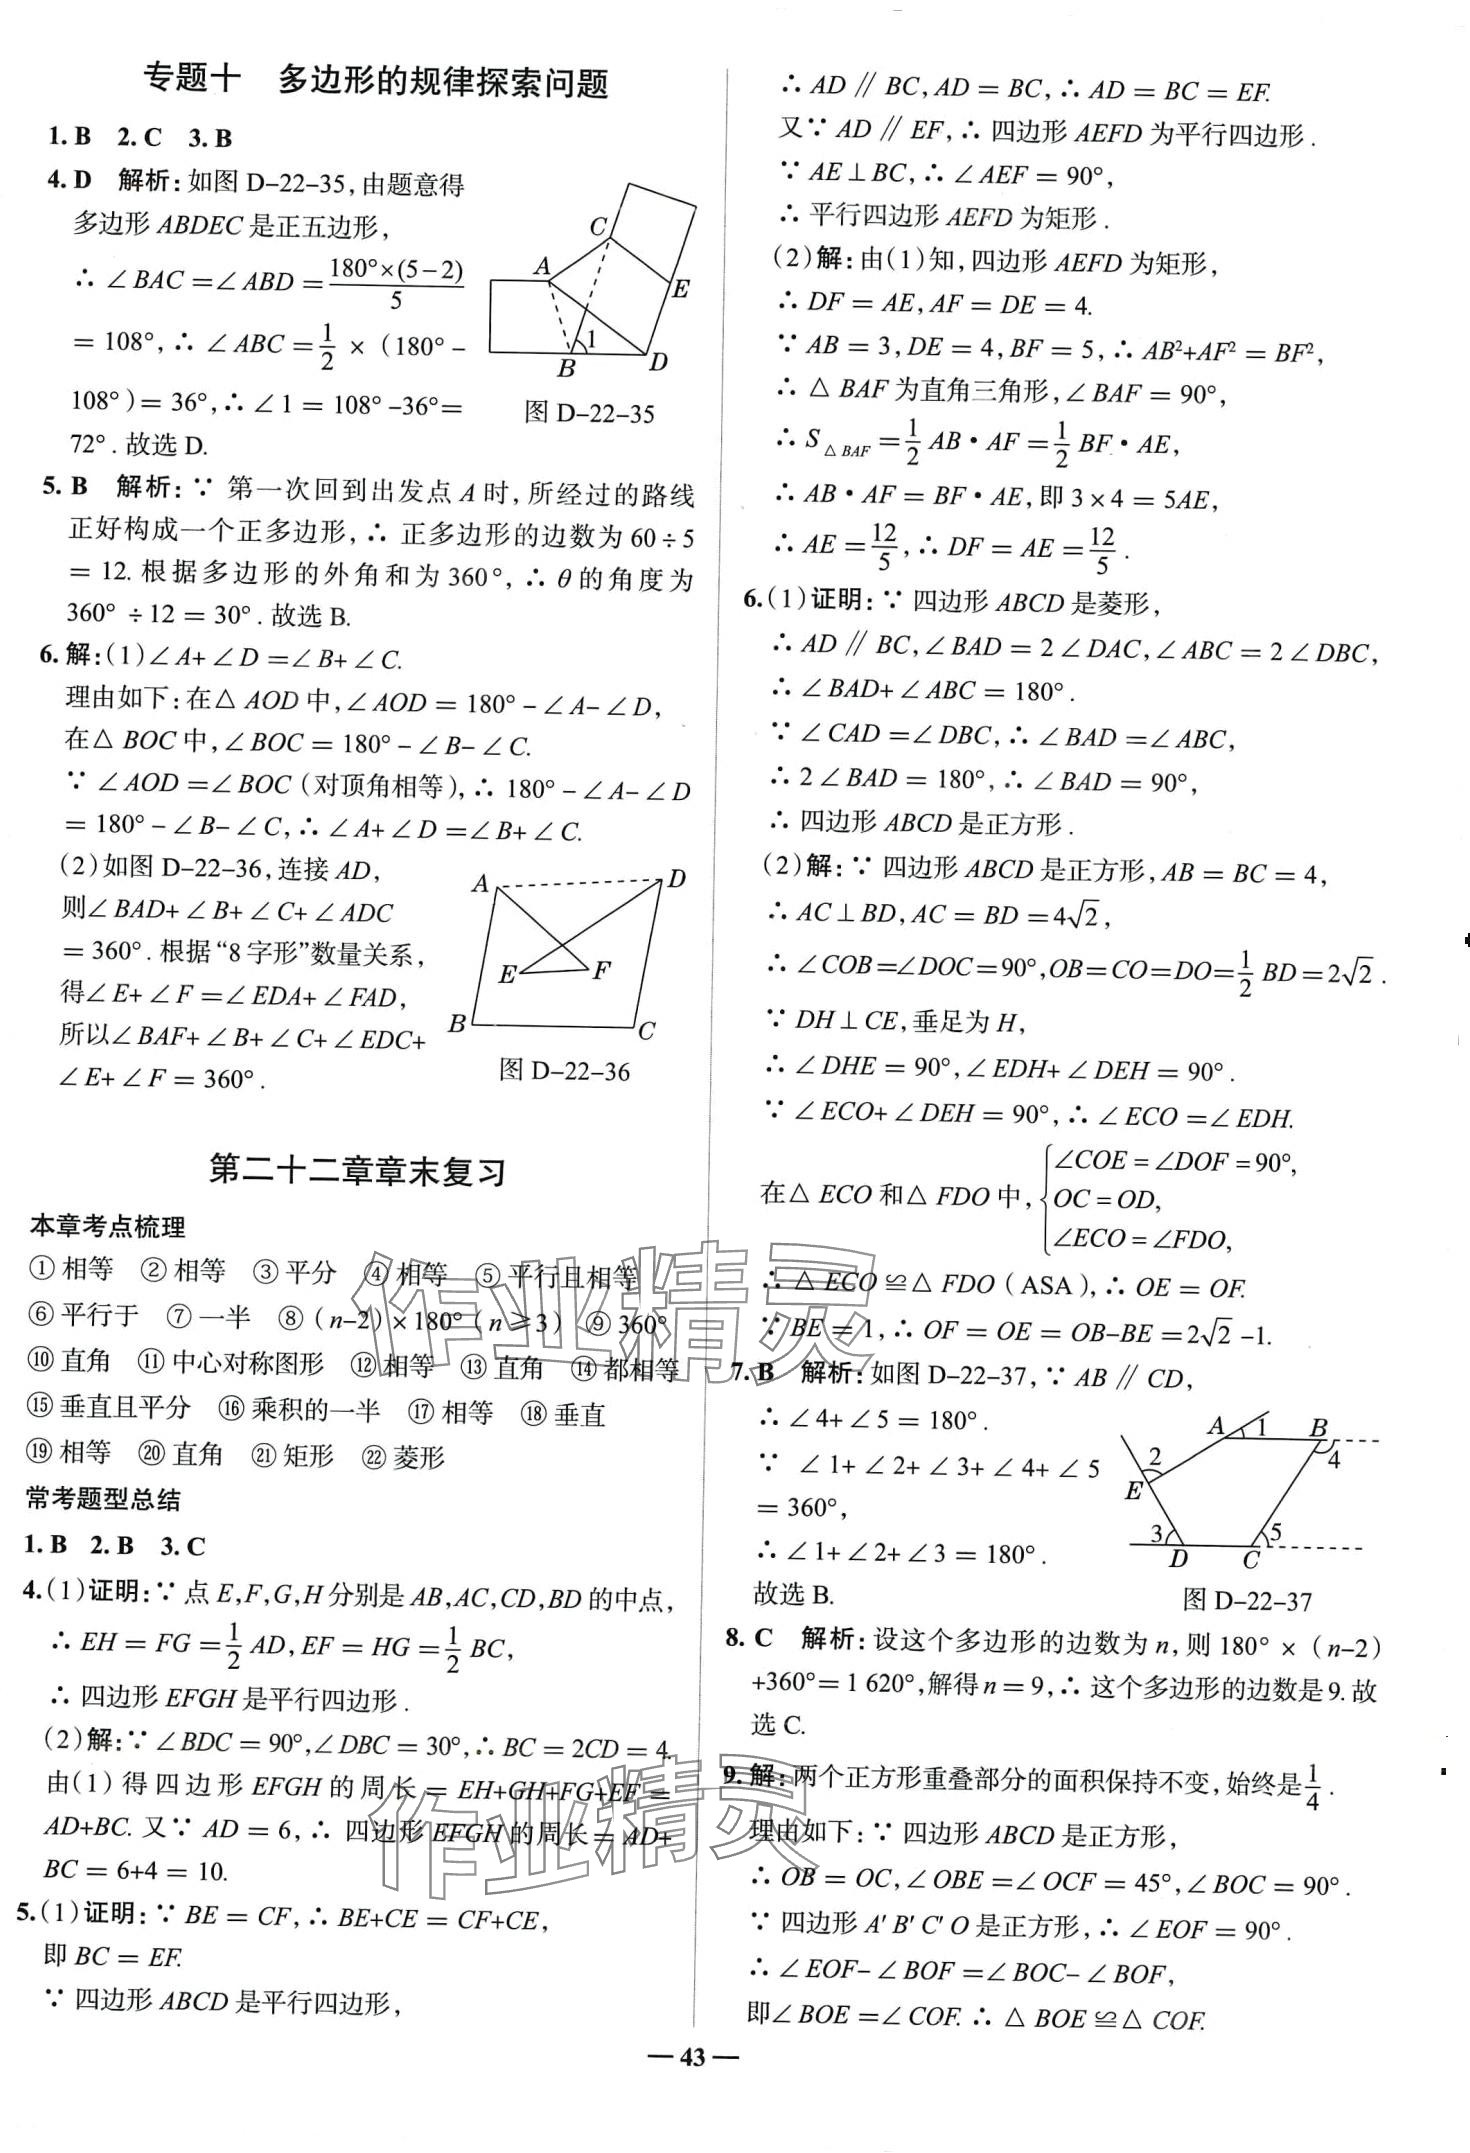 专题十　多边形的规律探索问题
1. B　2. C　3. B
4. D　解析:如图 D-22-35,由题意得
多边形 ABDEC 是正五边形,
∴ ∠BAC =∠ABD = 180°×(5-2)/5
= 108°,∴ ∠ABC = 1/2 × (180° -
108°)= 36°,∴ ∠1 = 108° -36°=
72°. 故选 D.
A
B
C
D
E
1
图 D-22-35
5. B　解析:∵ 第一次回到出发点 A 时,所经过的路线
正好构成一个正多边形,∴ 正多边形的边数为 60÷5
= 12. 根据多边形的外角和为 360°,∴ θ 的角度为
360° ÷12 = 30°. 故选 B.
6. 解:(1)∠A+∠D =∠B+∠C.
理由如下:在△AOD 中,∠AOD = 180° -∠A-∠D,
在△BOC 中,∠BOC = 180° -∠B-∠C.
∵ ∠AOD =∠BOC (对顶角相等),∴ 180° -∠A-∠D
= 180° -∠B-∠C,∴ ∠A+∠D =∠B+∠C.
(2)如图 D-22-36,连接 AD,
则∠BAD+∠B+∠C+∠ADC
= 360°. 根据“8 字形”数量关系,
得∠E+∠F =∠EDA+∠FAD,
所以∠BAF+∠B+∠C+∠EDC+
∠E+∠F = 360°.
A
D
E
F
B
C
图 D-22-36
第二十二章章末复习
本章考点梳理
①相等　②相等　③平分　④相等　⑤平行且相等
⑥平行于　⑦一半　⑧(n-2)×180°(n≥3)　⑨360°
⑩直角　⑪中心对称图形　⑫相等　⑬直角　⑭都相等
⑮垂直且平分　⑯乘积的一半　⑰相等　⑱垂直
⑲相等　⑳直角　㉑矩形　㉒菱形
常考题型总结
1. B　2. B　3. C
4. (1)证明:∵ 点 E,F,G,H 分别是 AB,AC,CD,BD 的中点,
∴ EH = FG = 1/2 AD,EF = HG = 1/2 BC,
∴ 四边形 EFGH 是平行四边形.
(2)解:∵ ∠BDC = 90°,∠DBC = 30°,∴ BC = 2CD = 4.
由(1)得四边形 EFGH 的周长 = EH+GH+FG+EF =
AD+BC. 又∵ AD = 6,∴ 四边形 EFGH 的周长 = AD+
BC = 6+4 = 10.
5. (1)证明:∵ BE = CF,∴ BE+CE = CF+CE,
即 BC = EF.
∵ 四边形 ABCD 是平行四边形,
∴ AD∥BC,AD = BC,∴ AD = BC = EF.
又∵ AD∥EF,∴ 四边形 AEFD 为平行四边形.
∵ AE⊥BC,∴ ∠AEF = 90°,
∴ 平行四边形 AEFD 为矩形.
(2)解:由(1)知,四边形 AEFD 为矩形,
∴ DF = AE,AF = DE = 4.
∵ AB = 3,DE = 4,BF = 5,∴ AB²+AF² = BF²,
∴ △BAF 为直角三角形,∠BAF = 90°,
∴ S△BAF = 1/2 AB·AF = 1/2 BF·AE,
∴ AB·AF = BF·AE,即 3×4 = 5AE,
∴ AE = 12/5,∴ DF = AE = 12/5.
6. (1)证明:∵ 四边形 ABCD 是菱形,
∴ AD∥BC,∠BAD = 2∠DAC,∠ABC = 2∠DBC,
∴ ∠BAD+∠ABC = 180°.
∵ ∠CAD =∠DBC,∴ ∠BAD =∠ABC,
∴ 2∠BAD = 180°,∴ ∠BAD = 90°,
∴ 四边形 ABCD 是正方形.
(2)解:∵ 四边形 ABCD 是正方形,AB = BC = 4,
∴ AC⊥BD,AC = BD = 4√2,
∴ ∠COB=∠DOC=90°,OB=CO=DO= 1/2 BD=2√2.
∵ DH⊥CE,垂足为 H,
∴ ∠DHE = 90°,∠EDH+∠DEH = 90°.
∵ ∠ECO+∠DEH = 90°,∴ ∠ECO =∠EDH.
∠COE =∠DOF = 90°,
在△ECO 和△FDO 中,{ OC = OD,
∠ECO =∠FDO,
∴ △ECO≌△FDO (ASA),∴ OE = OF.
∵ BE = 1,∴ OF = OE = OB-BE = 2√2 -1.
7. B　解析:如图 D-22-37,∵ AB∥CD,
∴ ∠4+∠5 = 180°.
∵ ∠1+∠2+∠3+∠4+∠5
= 360°,
∴ ∠1+∠2+∠3 = 180°.
故选 B.
A
1
B
2
4
E
3
5
D
C
图 D-22-37
8. C　解析:设这个多边形的边数为 n,则 180° × (n-2)
+360°= 1 620°,解得 n = 9,∴ 这个多边形的边数是 9. 故
选 C.
9. 解:两个正方形重叠部分的面积保持不变,始终是 1/4.
理由如下:∵ 四边形 ABCD 是正方形,
∴ OB = OC,∠OBE =∠OCF = 45°,∠BOC = 90°.
∵ 四边形 A'B'C'O 是正方形,∴ ∠EOF = 90°.
∴ ∠EOF-∠BOF =∠BOC-∠BOF,
即∠BOE =∠COF. ∴ △BOE≌△COF.
— 43 —
作业精灵
作业精灵